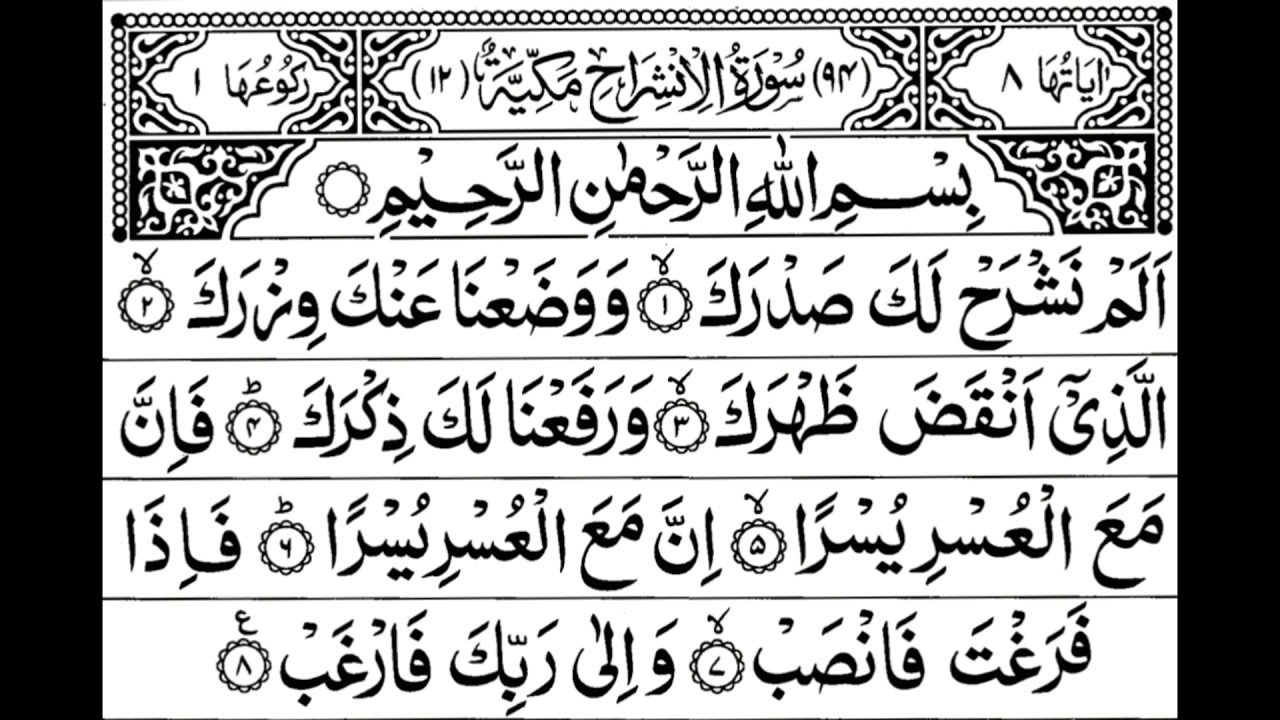 اٰيَاتُهَا ۸ (۹۴) سُوْرَةُ الْاِنْشِرَاحِ مَكِّيَّةٌ (۱۲) رُكُوْعُهَا ۱
بِسْمِ اللّٰهِ الرَّحْمٰنِ الرَّحِيْمِ
اَلَمْ نَشْرَحْ لَكَ صَدْرَكَ ۙ‏﴿۱﴾ وَوَضَعْنَا عَنْكَ وِزْرَكَ ۙ‏﴿۲﴾
الَّذِىْٓ اَنْقَضَ ظَهْرَكَ ۙ‏﴿۳﴾ وَرَفَعْنَا لَكَ ذِكْرَكَ ؕ‏﴿۴﴾ فَاِنَّ
مَعَ الْعُسْرِ يُسْرًا ۙ‏﴿۵﴾ اِنَّ مَعَ الْعُسْرِ يُسْرًا ؕ‏﴿۶﴾ فَاِذَا
فَرَغْتَ فَانْصَبْ ۙ‏﴿۷﴾ وَاِلٰى رَبِّكَ فَارْغَبْ ﴿۸﴾ ع